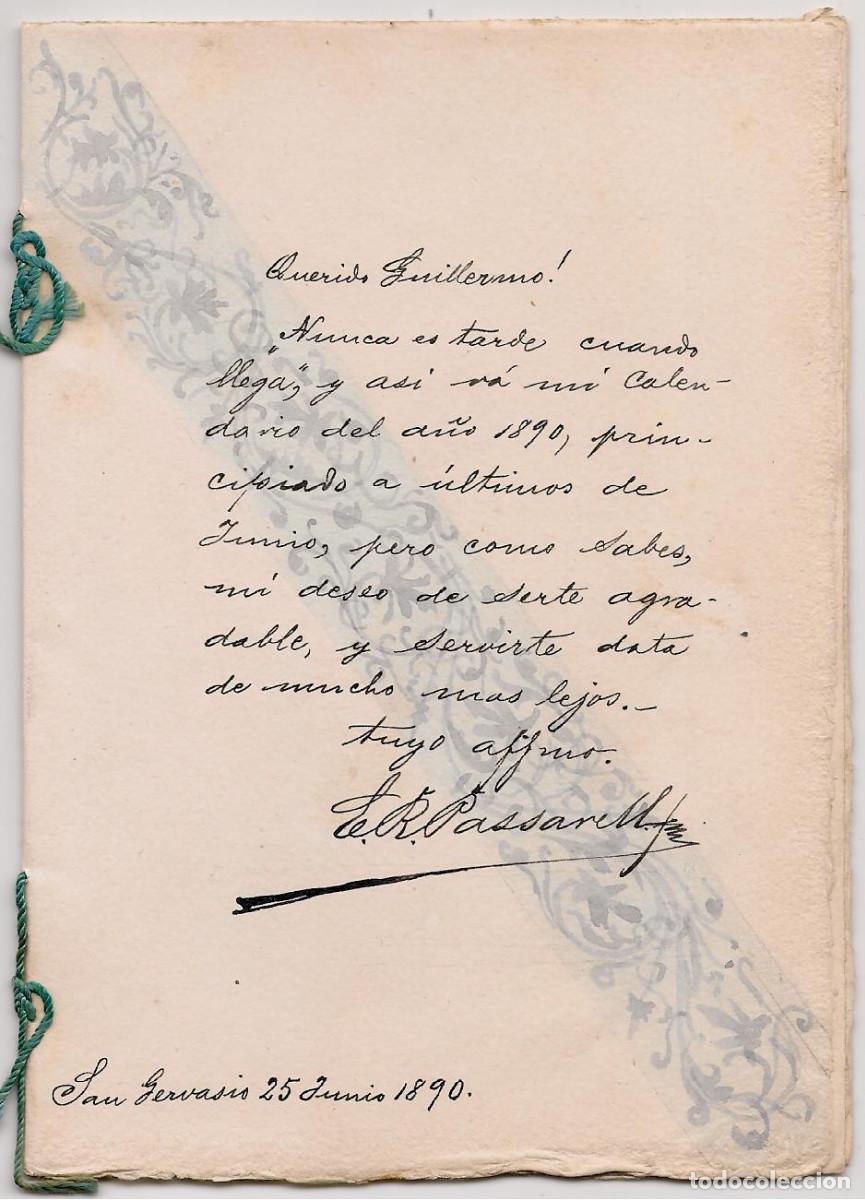 Querido Guillermo!
„Nunca es tarde cuando
llega", y asi vá mi Calen-
dario del año 1890, prin-
cipiado a últimos de
Junio, pero como sabes,
mi deseo de serte agra-
dable, y servirte data
de mucho mas lejos.-
tuyo affmo.
E. R. Passarell
San Gervasio 25 Junio 1890.
todocoleccion